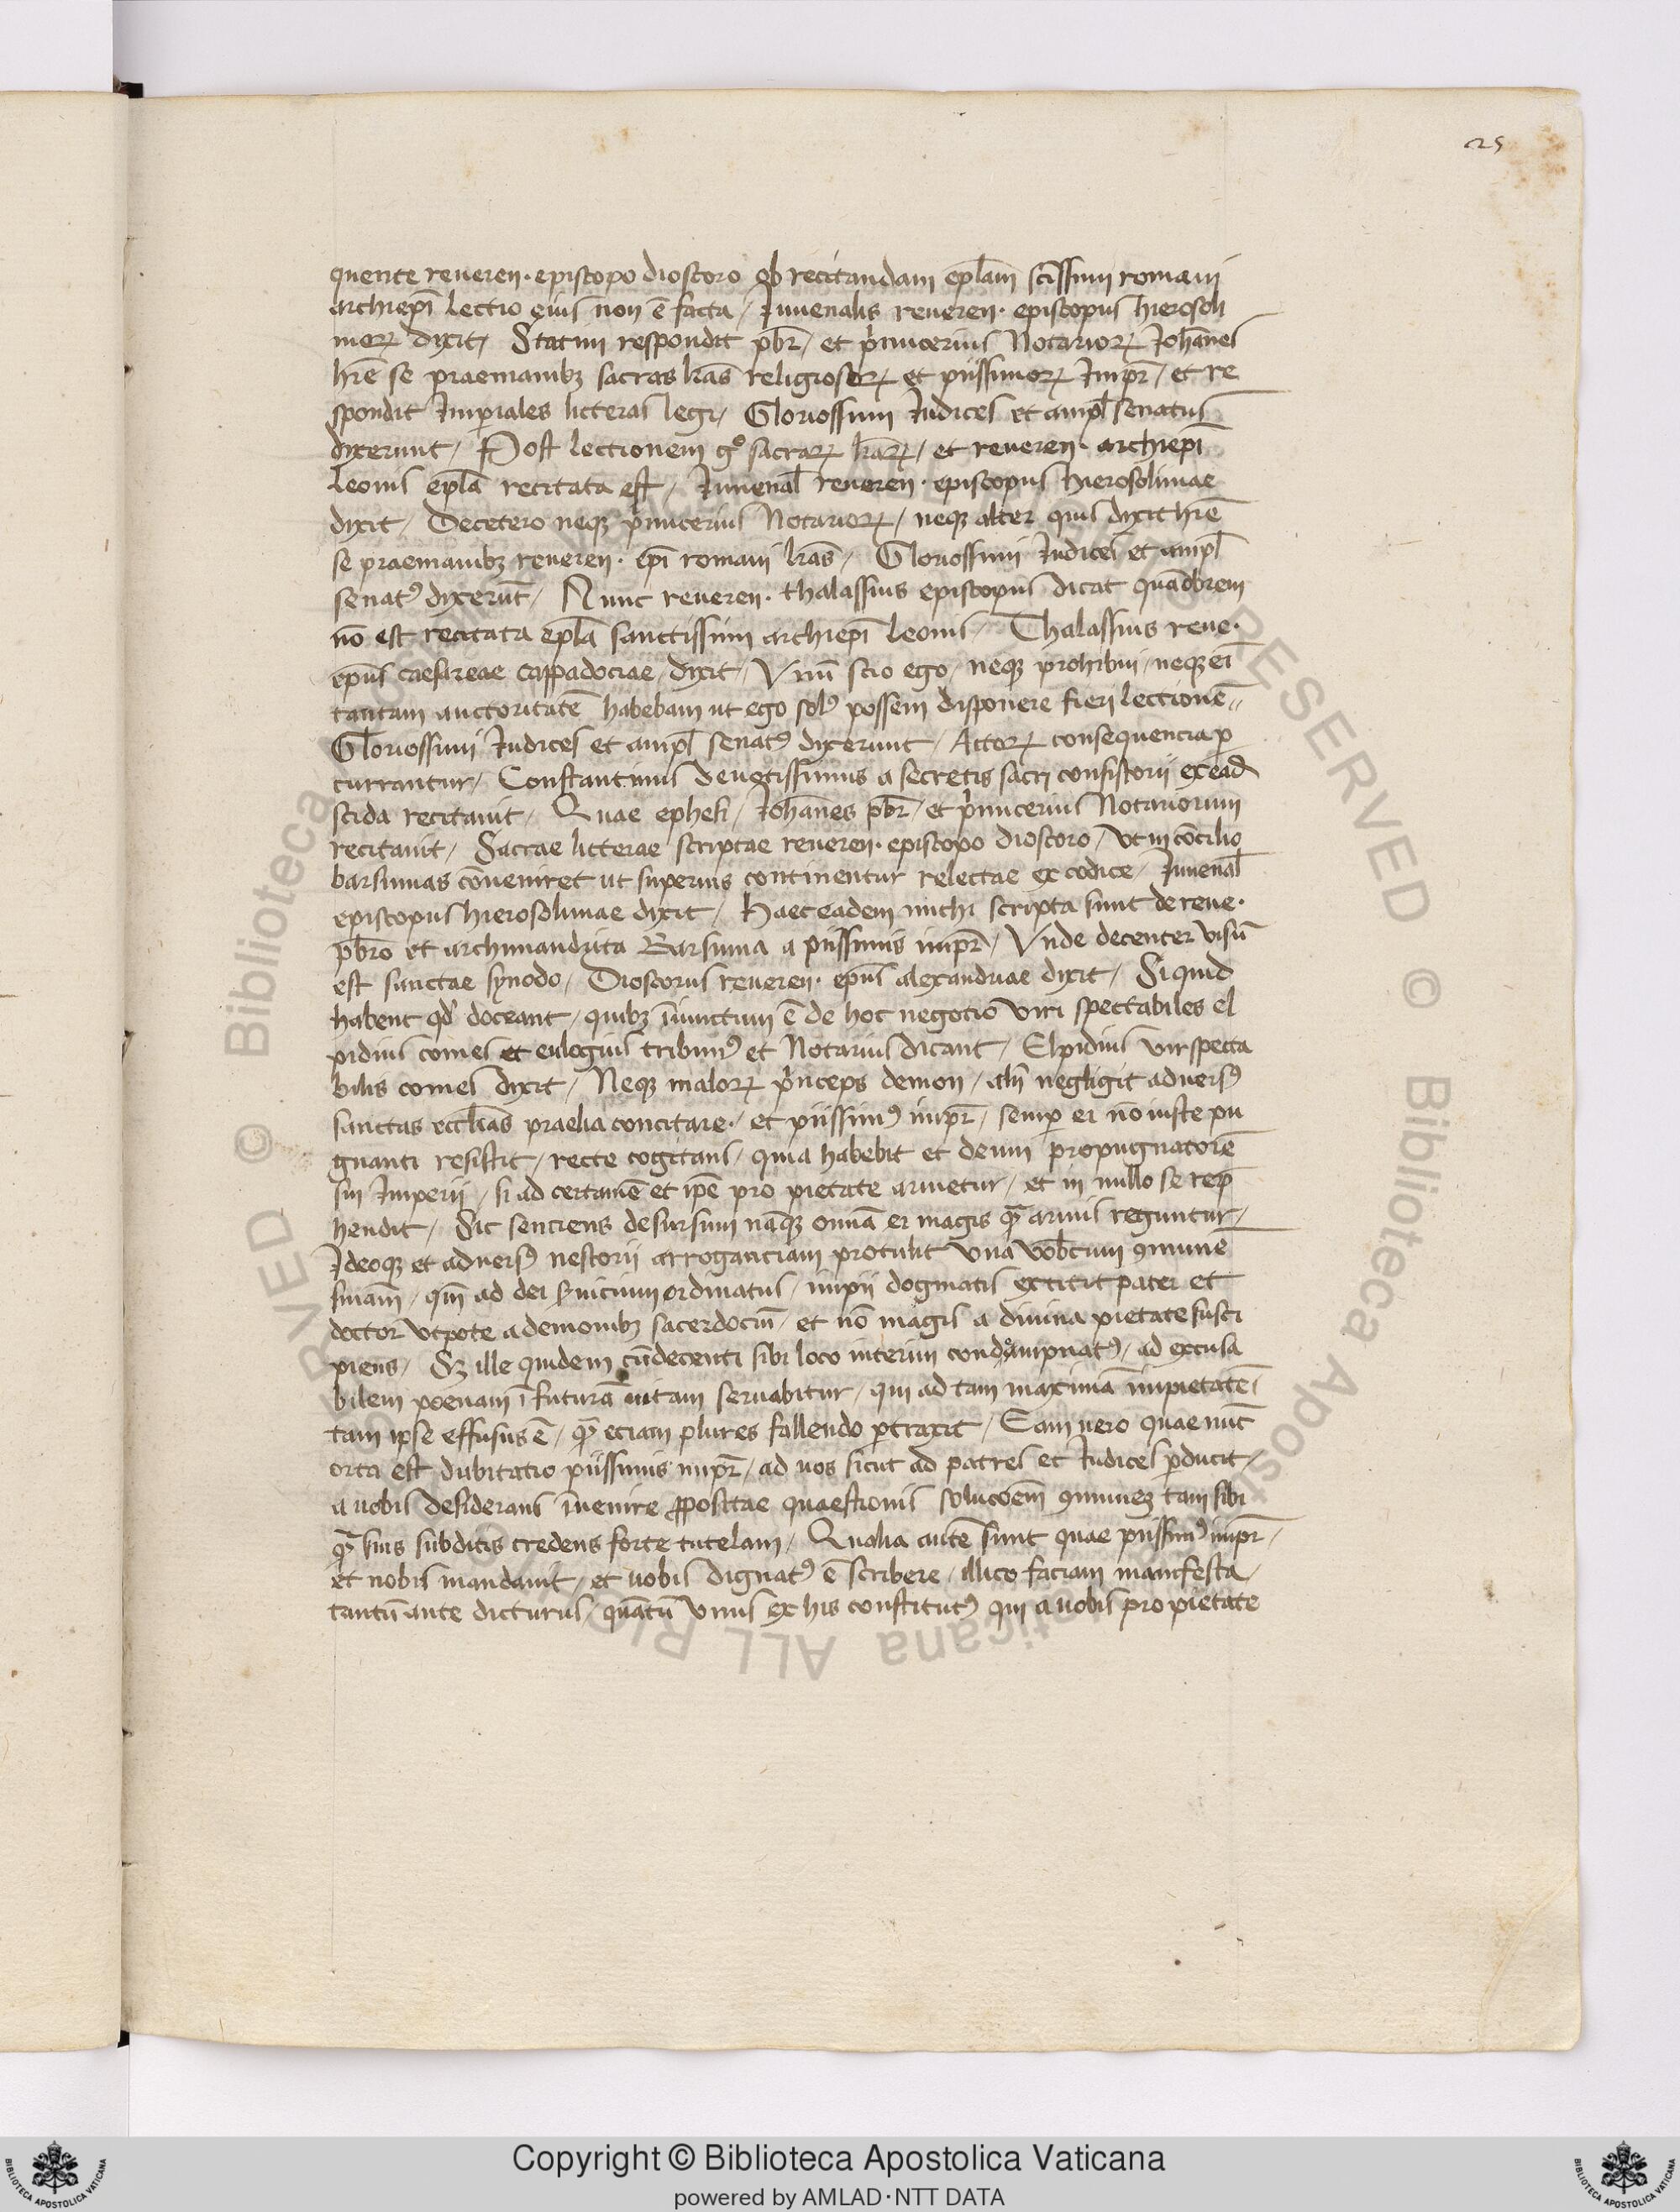 25
quente reueren. episcopo dioscoro ob recitandam epl̄am sc̄issimi romani
archiepī lectio eius non ē facta / Juuenalis reueren. episcopus hierosoli
moꝝ dixit / Statim respondit pb̄r / et p̄imicerius Notarioꝝ Joh̄anes
hr̄e se praemanibꝫ sacras lr̄as religiosoꝝ et piissimoꝝ Impr̄ / et re
spondit Imperiales litteras legi / Gloriossimi Judices et ampl̄ senatus
dixerunt / Post lectionem gͦ sacraꝝ lr̄aꝝ / et reueren. archiepī
Leonis epl̄a recitata est / Juuenal̄ reueren. episcopus hierosolimae
dixit / Decetero neqꝫ p̄imicerius Notarioꝝ / neqꝫ alter quis dixit hr̄e
se praemanibꝫ reueren. epī romani lr̄as / Gloriossimi Judices et ampl̄
senatꝰ dixerūt / Nunc reueren. thalassius episcopus dicat quāobrem
nō est recitata epl̄a sanctissimi archiepī leonis / Thalassius reue.
ep̄us caesareae cappadociae / dixit / Vnū scio ego / neqꝫ prohibui / neqꝫ eī
tantam auctoritatē habebam ut ego solꝰ possem disponere fieri lectionē
Gloriossimi Judices et ampl̄ senatꝰ dixerunt / Actoꝝ consequencia ꝑ
currantur / Constantinus deuotissimus a secretis sacri consistorii ex ead
scida recitauit / Quae ephesi / Joh̄anes pb̄r / et p̄imicerius Notariorum
recitauit / Sacrae litterae scriptae reueren. episcopo dioscoro / vt in cōcilio
barsumas cōueniret ut superius continentur relectae ex codice / Juuenal̄
episcopus hierosolimae dixit / Haec eadem michi scripta sunt de reue.
pb̄ro et archimandrita Barsuma a piissimis impr̄ / Vnde decenter visū
est sanctae synodo / Dioscorus reueren. ep̄us alexandriae dixit / Si quid
habent qd̄ doceant / quibꝫ īiunctum ē de hoc negotio viri spectabiles el
pidius comes et eulogius tribunꝰ et Notarius dicant / Elpidius vir specta
bilis comes dixit / Neqꝫ maloꝝ p̄inceps demon / alīi negligit aduersꝰ
sanctas eccl̄ias praelia concitare. / et piissimꝰ impr̄ / semꝑ ei nō iuste pu
gnanti resistit / recte cogitans / quia habebit et deum propugnatorē
sui Imperii / si ad certamē et ip̄e pro pietate armetur / et in nullo se rep̄
hendit / Sic senciens desursum nāqꝫ om̄ia ei magis qꝫ armis reguntur /
Ideoqꝫ et aduersꝰ nestorii arroganciam protulit vna vob̄cum ꝯmunē
snīam / qm̄ ad dei seruicium ordinatus / impii dogmatis extitit pater et
doctor vtpote a demonibꝫ sacerdociū / et nō magis a diuina pietate susci
piens / Sꝫ ille quidem cū decenti sibi loco interim condampnatꝰ / ad excusa
bilem poenam ī futurā uitam seruabitur / qui ad tam maximā impietatē
tam ipse effusus ē / qꝫ eciam plures fallendo ꝑtraxit / Eam uero quae nūc
orta est dubitatio piissimis impr̄ / ad uos sicut ad patres et Judices ꝑducit /
a uobis desiderans īuenire ꝓpositae quaestionis solucōem ꝯmunēqꝫ tam sibi
qꝫ suis subditis credens forte tutelam / Qualia autē sunt quae piissimꝰ impr̄ /
et nobis mandauit / et uobis dignatꝰ ē scribere / illico faciam manifesta /
tantū ante dicturus / quātū vnus ex his constitutꝰ qui a uobis pro pietate
Copyright © Biblioteca Apostolica Vaticana
powered by AMLAD·NTT DATA